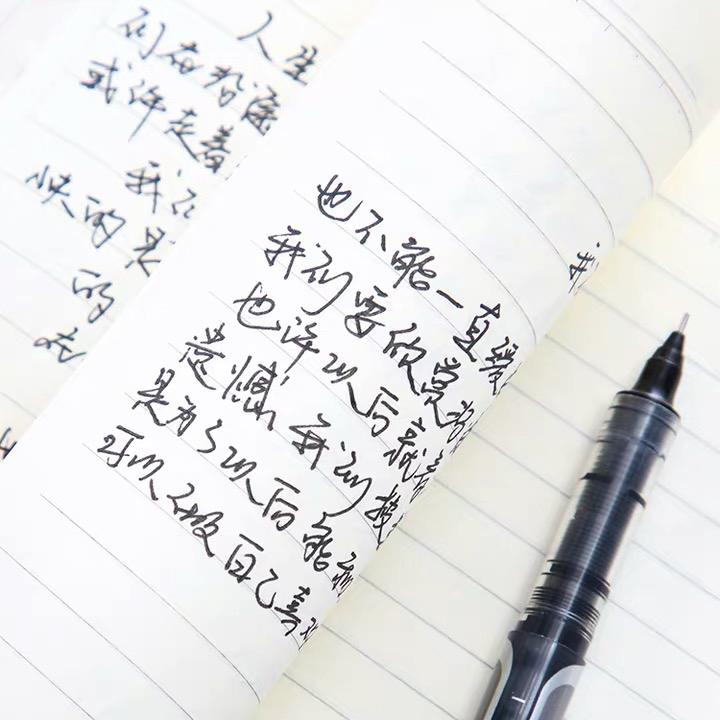 人生
们在沿途
或许走着
我们
快的是
的
在
也不能一直
我们要欣赏
也许以后就
遗憾,我们
是为了以后能
可以做自己喜欢
我